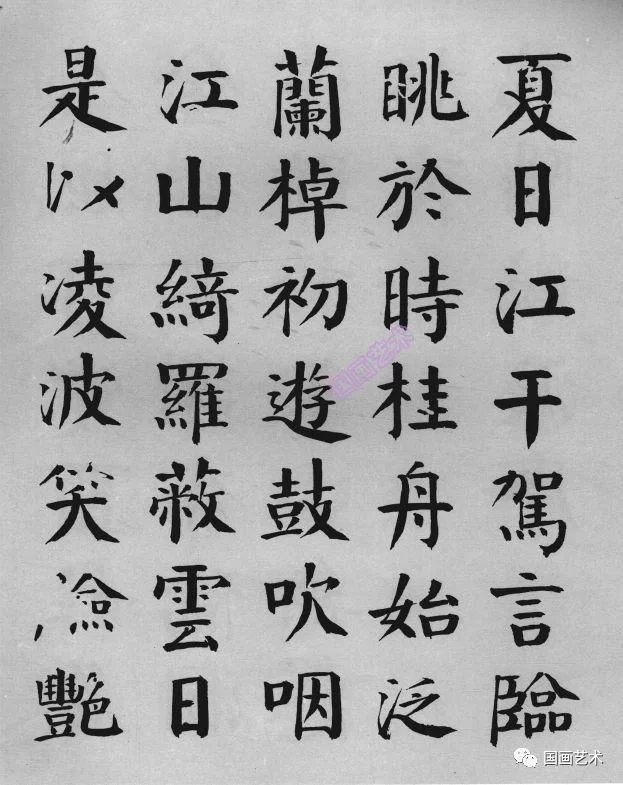 夏日江干駕言臨
眺於時桂舟始泛
蘭棹初遊鼓吹咽
江山綺羅蔽雲日
是以凌波笑艷
国画艺术
国画艺术